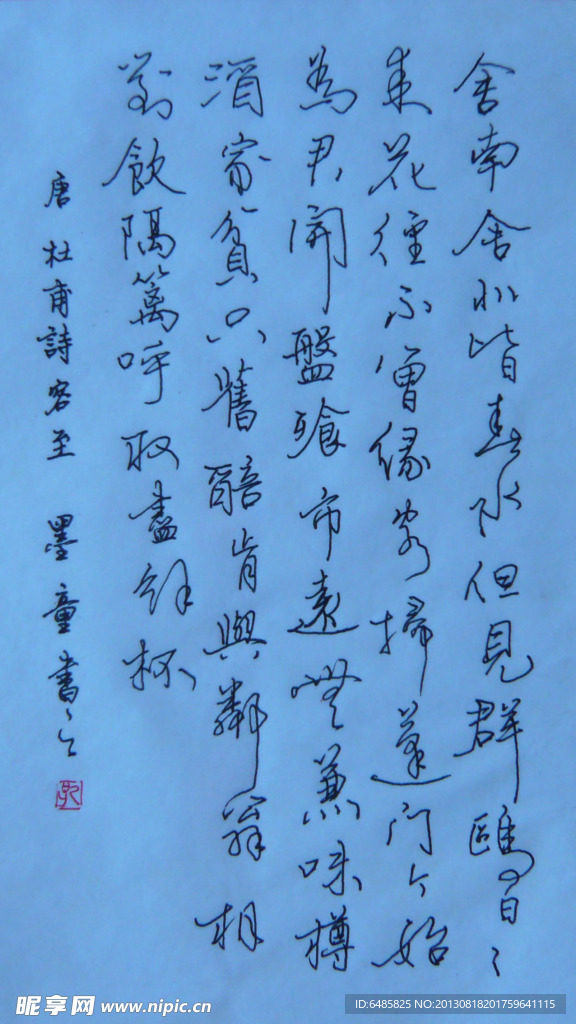 舍南舍北皆春水但見群鷗日〻
來花徑不曾緣客掃蓬門今始
為君開盤飱市遠無兼味樽
酒家貧只舊醅肯與鄰翁相
對飲隔籬呼取盡餘杯
唐杜甫詩客至 墨童書
昵享网 www.nipic.cn
ID:6485825 NO:20130818201759641115